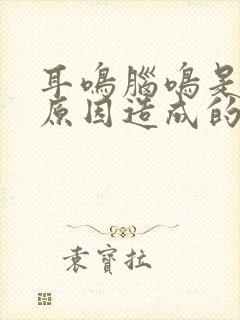 耳鳴腦鳴是
原因造成的
袁寶拉